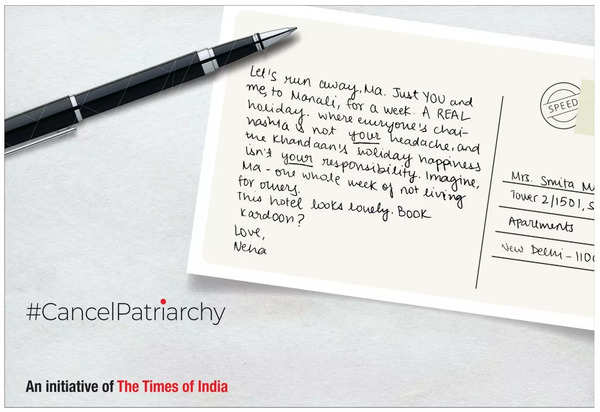 Let's run away, Ma. Just YOU and
me, to Manali, for a week. A REAL
holiday. where everyone's chai-
nashta is not your headache, and
the Khandaan's holiday happiness
isn't your responsibility. Imagine,
Ma - one whole week of not living
for others.
This hotel looks lovely. Book
kardoon?
Love,
Neha
SPEED
Mrs. Smita M
Tower 2/1501, S
Apartments
New Delhi - 110
#CancelPatriarchy
An initiative of The Times of India